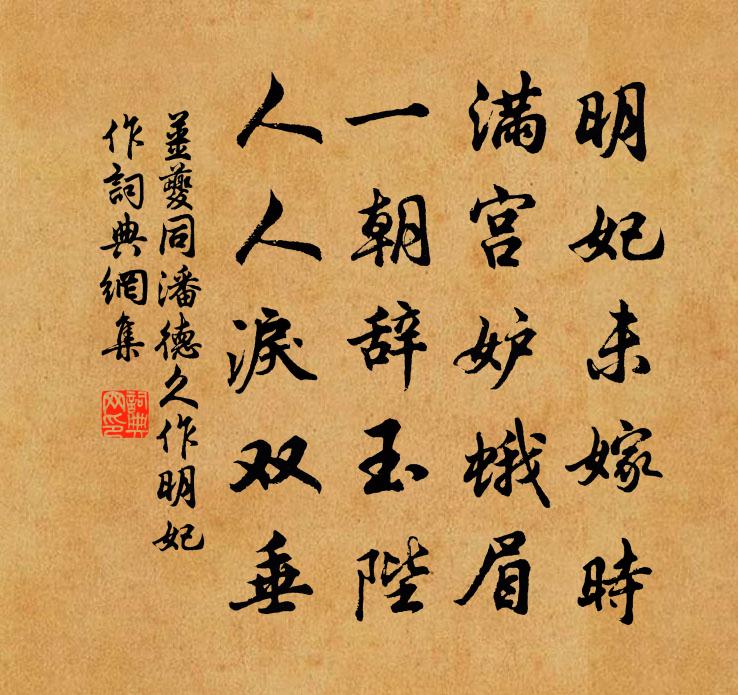 明妃未嫁時
满宫妒蛾眉
一朝辞玉陛
人人淚双垂
姜夔同潘德久作明妃
作詞典網集
詞典网印